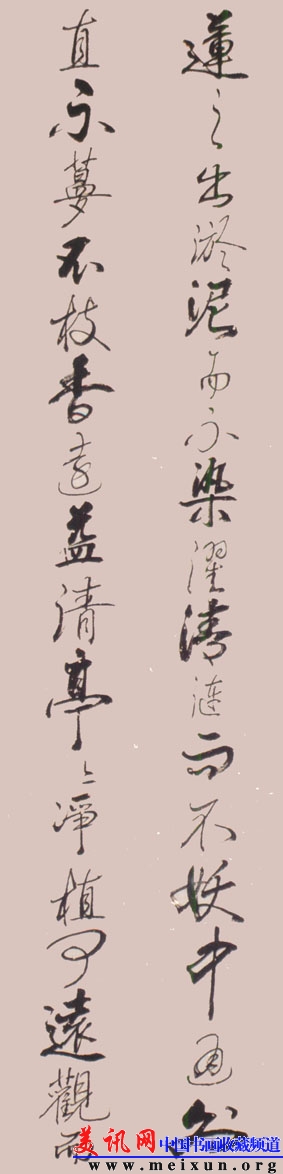 蓮之出淤泥而不染濯清漣而不妖中通外
直不蔓不枝香遠益清亭〻淨植可遠觀而
美讯网 中国书画收藏频道
www.meixun.org